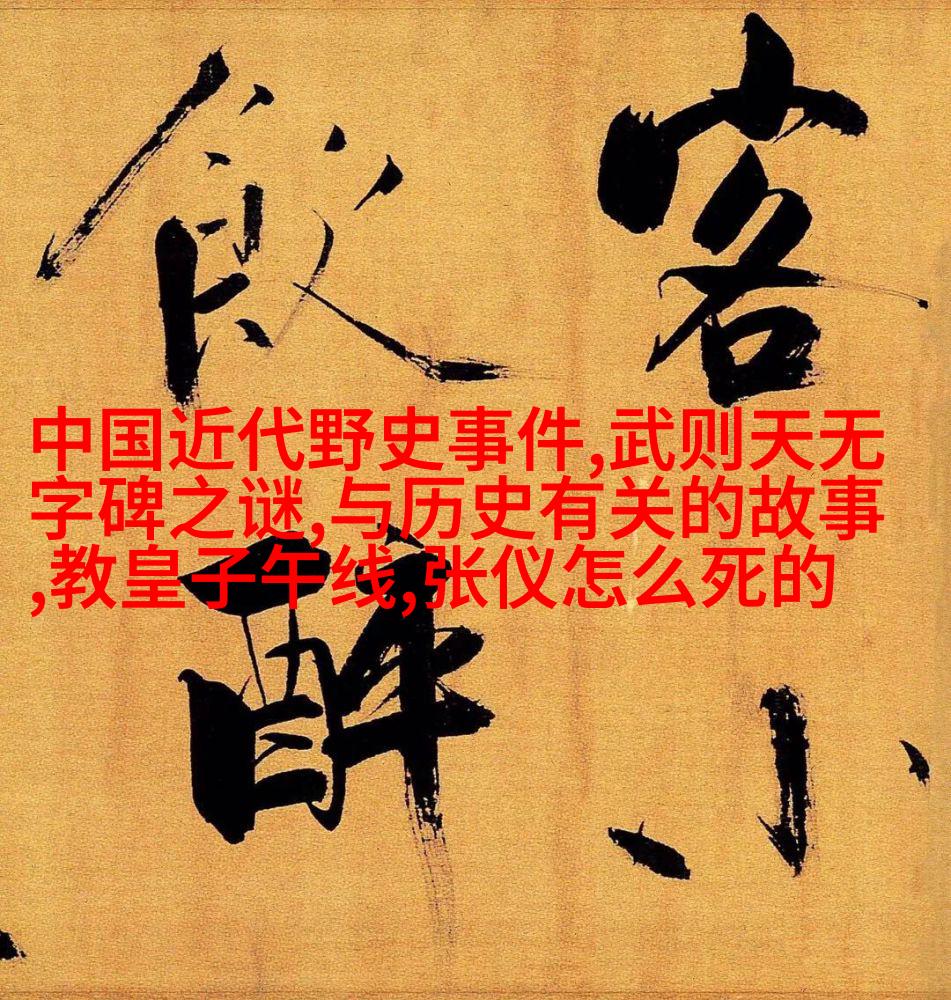 客小
飲醉
中国近代野史事件,武则天无
字碑之谜,与历史有关的故事
,教皇子午线,张仪怎么死的